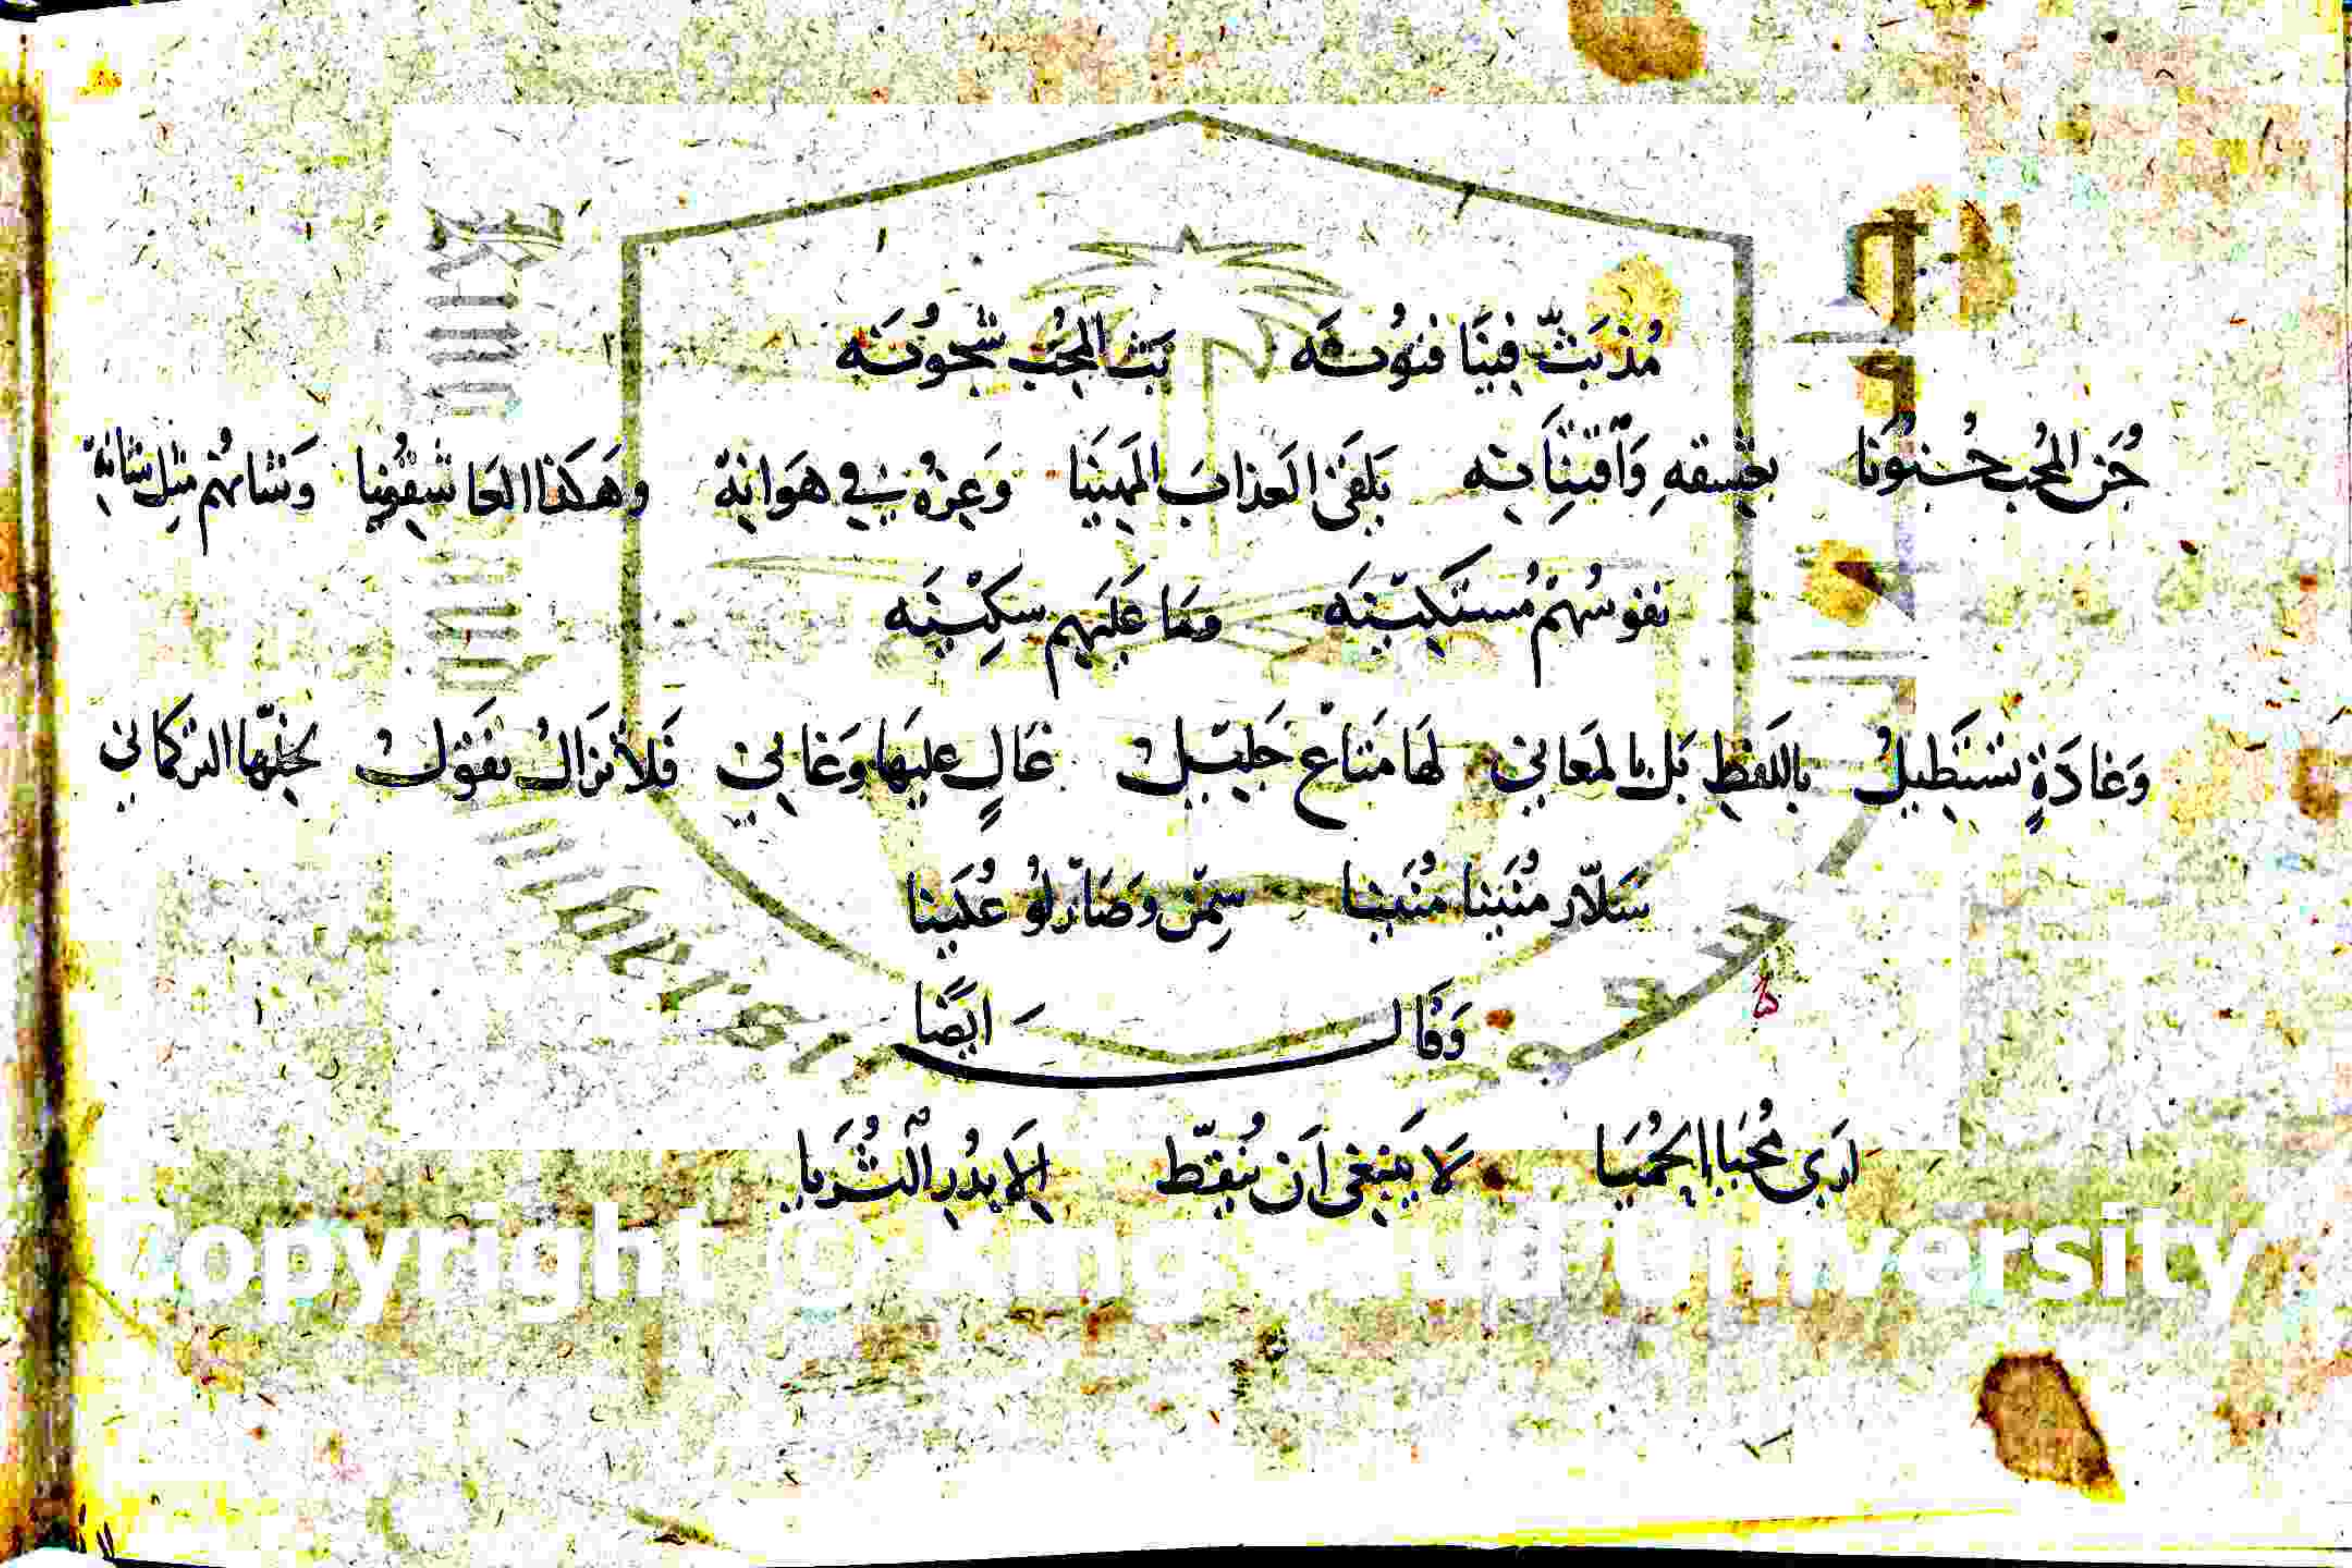 مُذ بَثّ فِينَا فنُونَه بَثّ المُحِبُّ شُجُونَه
جُنَّ المُحِب جُنُونَا بعِشقهِ وَافتِتَانِه يَلقَى العَذابَ المُهِينَا وَعِزُّهُ فِي هَوَانِهْ وهَكذا العَاشقُونا وَشَانهُم مثل شَانِهْ
نفوسُهُمْ مُستَكِينَه ومَا عَلَيهِم سَكِينَه
وَغادَةٍ تستَطيلُ باللَفظِ بَل بالمَعاني لهَا مَتاعٌ جَليل غَالٍ عليهَا وَغالي فَلا تَزَالُ تقول لخِلّها التركماني
سَلّار مُنَينا مُنَينا سِمّن وصَارلُو عُلَينا
وَقال ايضًا
ارَى مُحَيا الحُمَيا لا يَنبَغي اَن يُنقّط اِلا بدُر الثُرَيا
Copyright © King Saud University
King Saud University